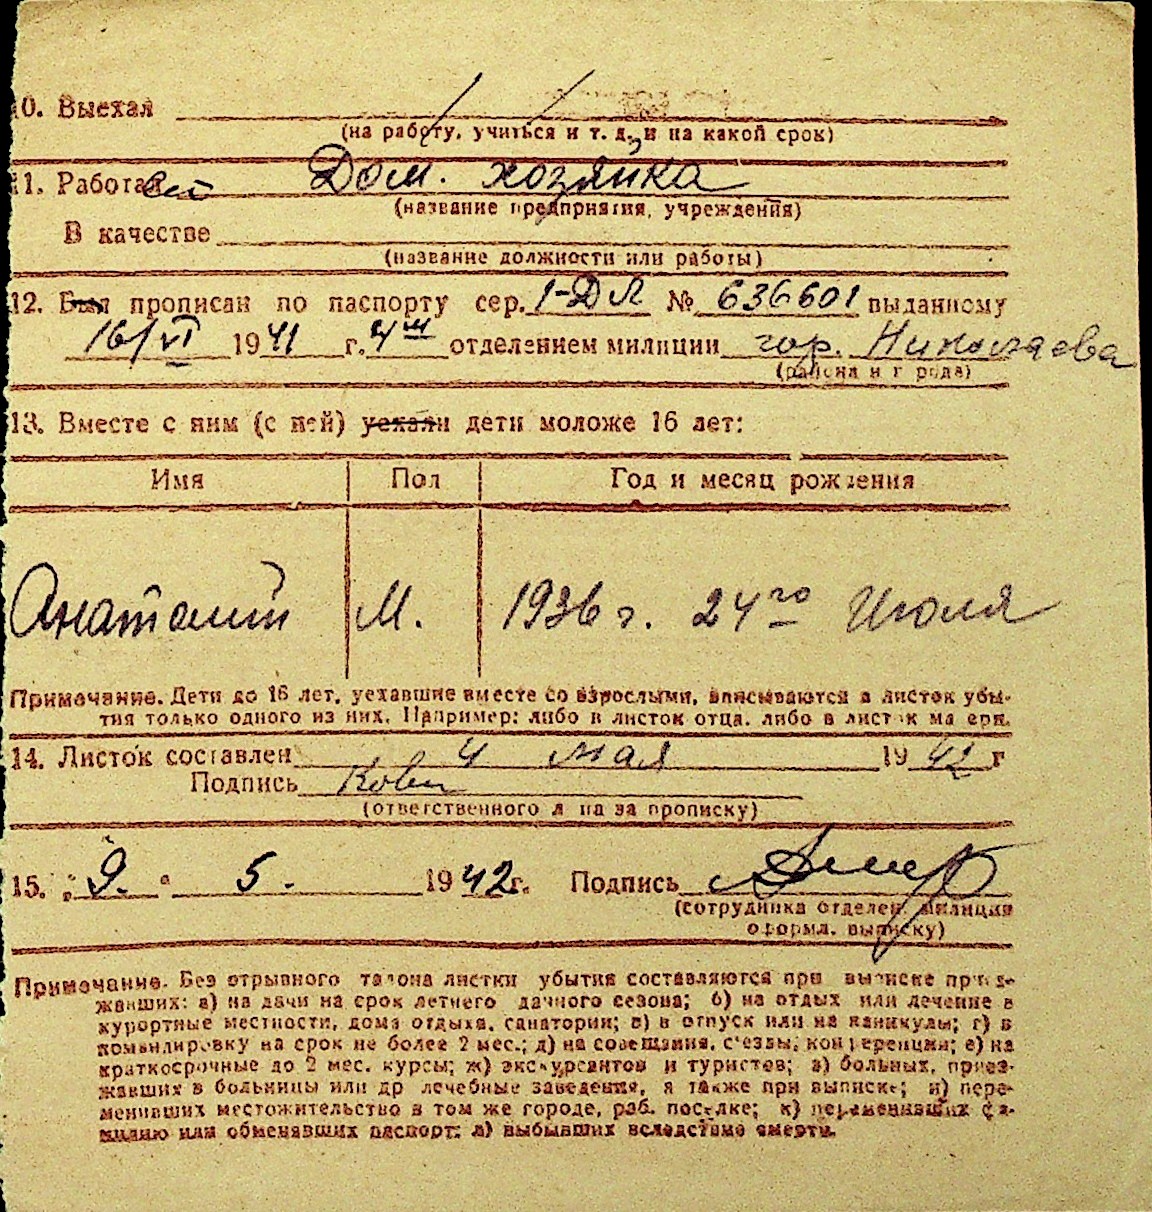 10. Выехал
(на работу, учиться и т. д. и на какой срок)
11. Работал Дом. хозяйка
(название предприятия, учреждения)
В качестве
(название должности или работы)
12. Был прописан по паспорту сер. 1-ДЛ № 636601 выданному
16/VI 1941 г. 4м отделением милиции гор. Николаева
(района и города)
13. Вместе с ним (с ней) уехали дети моложе 16 лет:
Имя Пол Год и месяц рождения
Анатолий М. 1936 г. 24го Июля
Примечание. Дети до 16 лет, уехавшие вместе со взрослыми, вписываются в листок убы-
тия только одного из них. Например: либо в листок отца, либо в листок матери.
14. Листок составлен 4 мая 1942 г
Подпись
(ответственного лица за прописку)
15. „9." 5. 1942 г. Подпись
(сотрудника отделен. милиции
оформл. выписку)
Примечание. Без отрывного талона листки убытия составляются при выписке приез-
жавших: а) на дачи на срок летнего дачного сезона; б) на отдых или лечение в
курортные местности, дома отдыха, санатории; в) в отпуск или на каникулы; г) в
командировку на срок не более 2 мес.; д) на совещания, с'езды, конференции; е) на
краткосрочные до 2 мес. курсы; ж) экскурсантов и туристов; з) больных, приез-
жавших в больницы или др лечебные заведения, а также при выписке; и) пере-
менивших местожительство в том же городе, раб. поселке; к) переменивших фа-
милию или обменявших паспорт; л) выбывших вследствие смерти.